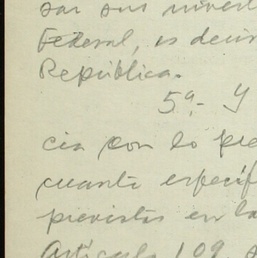 sar sus invest
Federal, es decir
República.
5ª.- Y
cia con lo pre
cuanto específ
previstos en la
Artículo 109